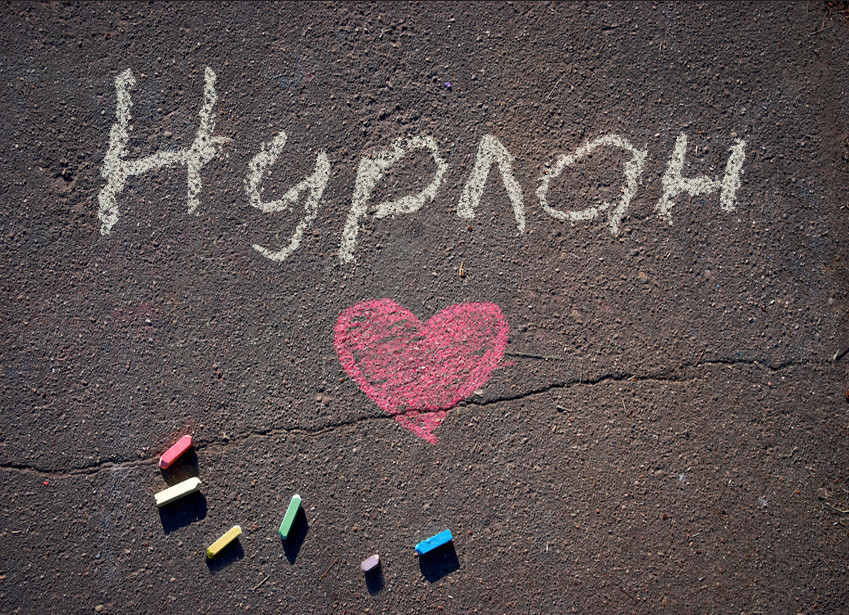 Нурлан